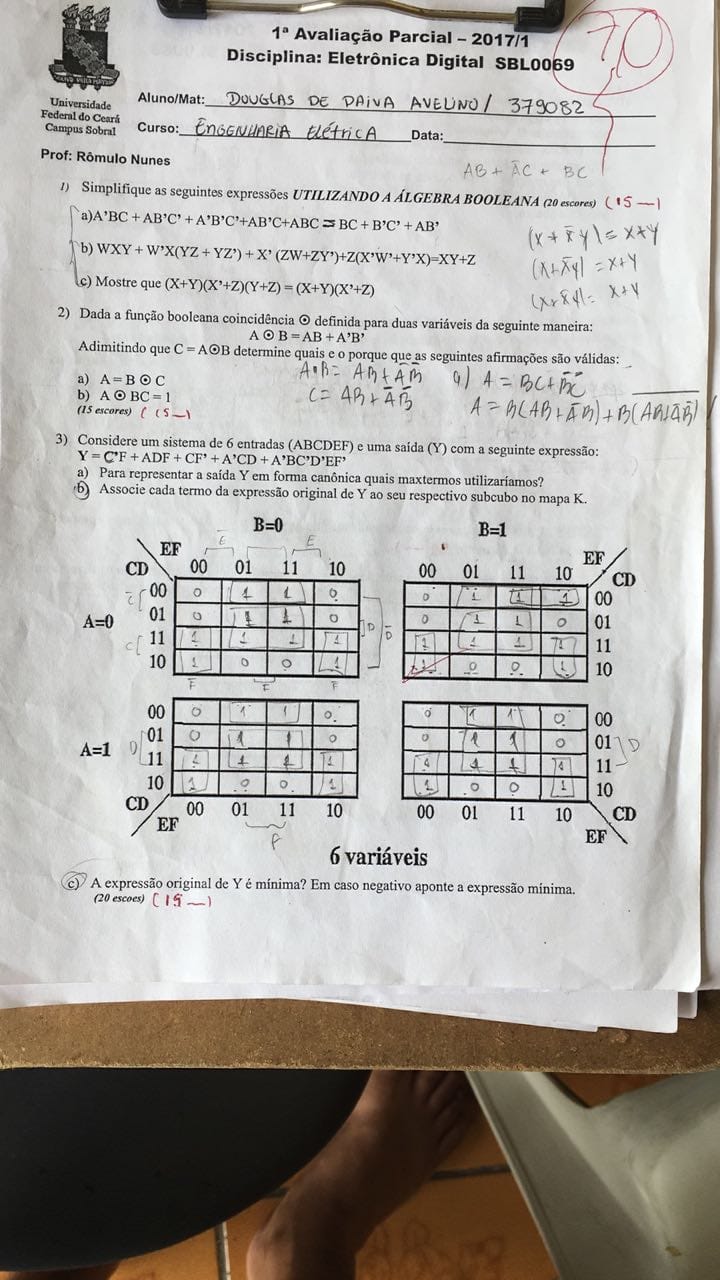 1ª Avaliação Parcial – 2017/1
7,0
Disciplina: Eletrônica Digital SBL0069
Universidade
Federal do Ceará
Campus Sobral
Aluno/Mat: DOUGLAS DE PAIVA AVELINO / 379082
Curso: ENGENHARIA ELÉTRICA Data:
Prof: Rômulo Nunes
AB + A̅C + BC
1) Simplifique as seguintes expressões UTILIZANDO A ÁLGEBRA BOOLEANA (20 escores) (15—)
a)A'BC + AB'C' + A'B'C'+AB'C+ABC = BC + B'C' + AB'
(X + X̅Y) = X+Y
b) WXY + W'X(YZ + YZ') + X' (ZW+ZY')+Z(X'W'+Y'X)=XY+Z
(X+X̅Y) = X+Y
c) Mostre que (X+Y)(X'+Z)(Y+Z) = (X+Y)(X'+Z)
(X+X̅Y)= X+Y
2) Dada a função booleana coincidência ⊙ definida para duas variáveis da seguinte maneira:
A ⊙ B = AB + A'B'
Adimitindo que C = A⊙B determine quais e o porque que as seguintes afirmações são válidas:
A⊙B = AB + A̅B̅ a) A = BC + B̅C̅
a) A = B ⊙ C
C = AB + A̅B̅
b) A ⊙ BC = 1
A = B(AB + A̅B̅) + B̅(AB+A̅B̅)
(15 escores) (15—)
3) Considere um sistema de 6 entradas (ABCDEF) e uma saída (Y) com a seguinte expressão:
Y = C'F + ADF + CF' + A'CD + A'BC'D'EF'
a) Para representar a saída Y em forma canônica quais maxtermos utilizaríamos?
b) Associe cada termo da expressão original de Y ao seu respectivo subcubo no mapa K.
B=0 B=1
E̅ E
EF EF
CD 00 01 11 10 00 01 11 10 CD
C̅ 00 0 1 1 0 0 1 1 1 00
A=0 01 0 1 1 0 D D̅ 0 1 1 0 01
C 11 1 1 1 1 1 1 1 1 11
10 1 0 0 1 1 0 0 1 10
F̅ F F̅
00 0 1 1 0 0 1 1 0 00
A=1 D 01 0 1 1 0 0 1 1 0 01 D
11 1 1 1 1 1 1 1 1 11
10 1 0 0 1 1 0 0 1 10
CD 00 01 11 10 00 01 11 10 CD
EF EF
F
6 variáveis
c) A expressão original de Y é mínima? Em caso negativo aponte a expressão mínima.
(20 escoes) (15—)